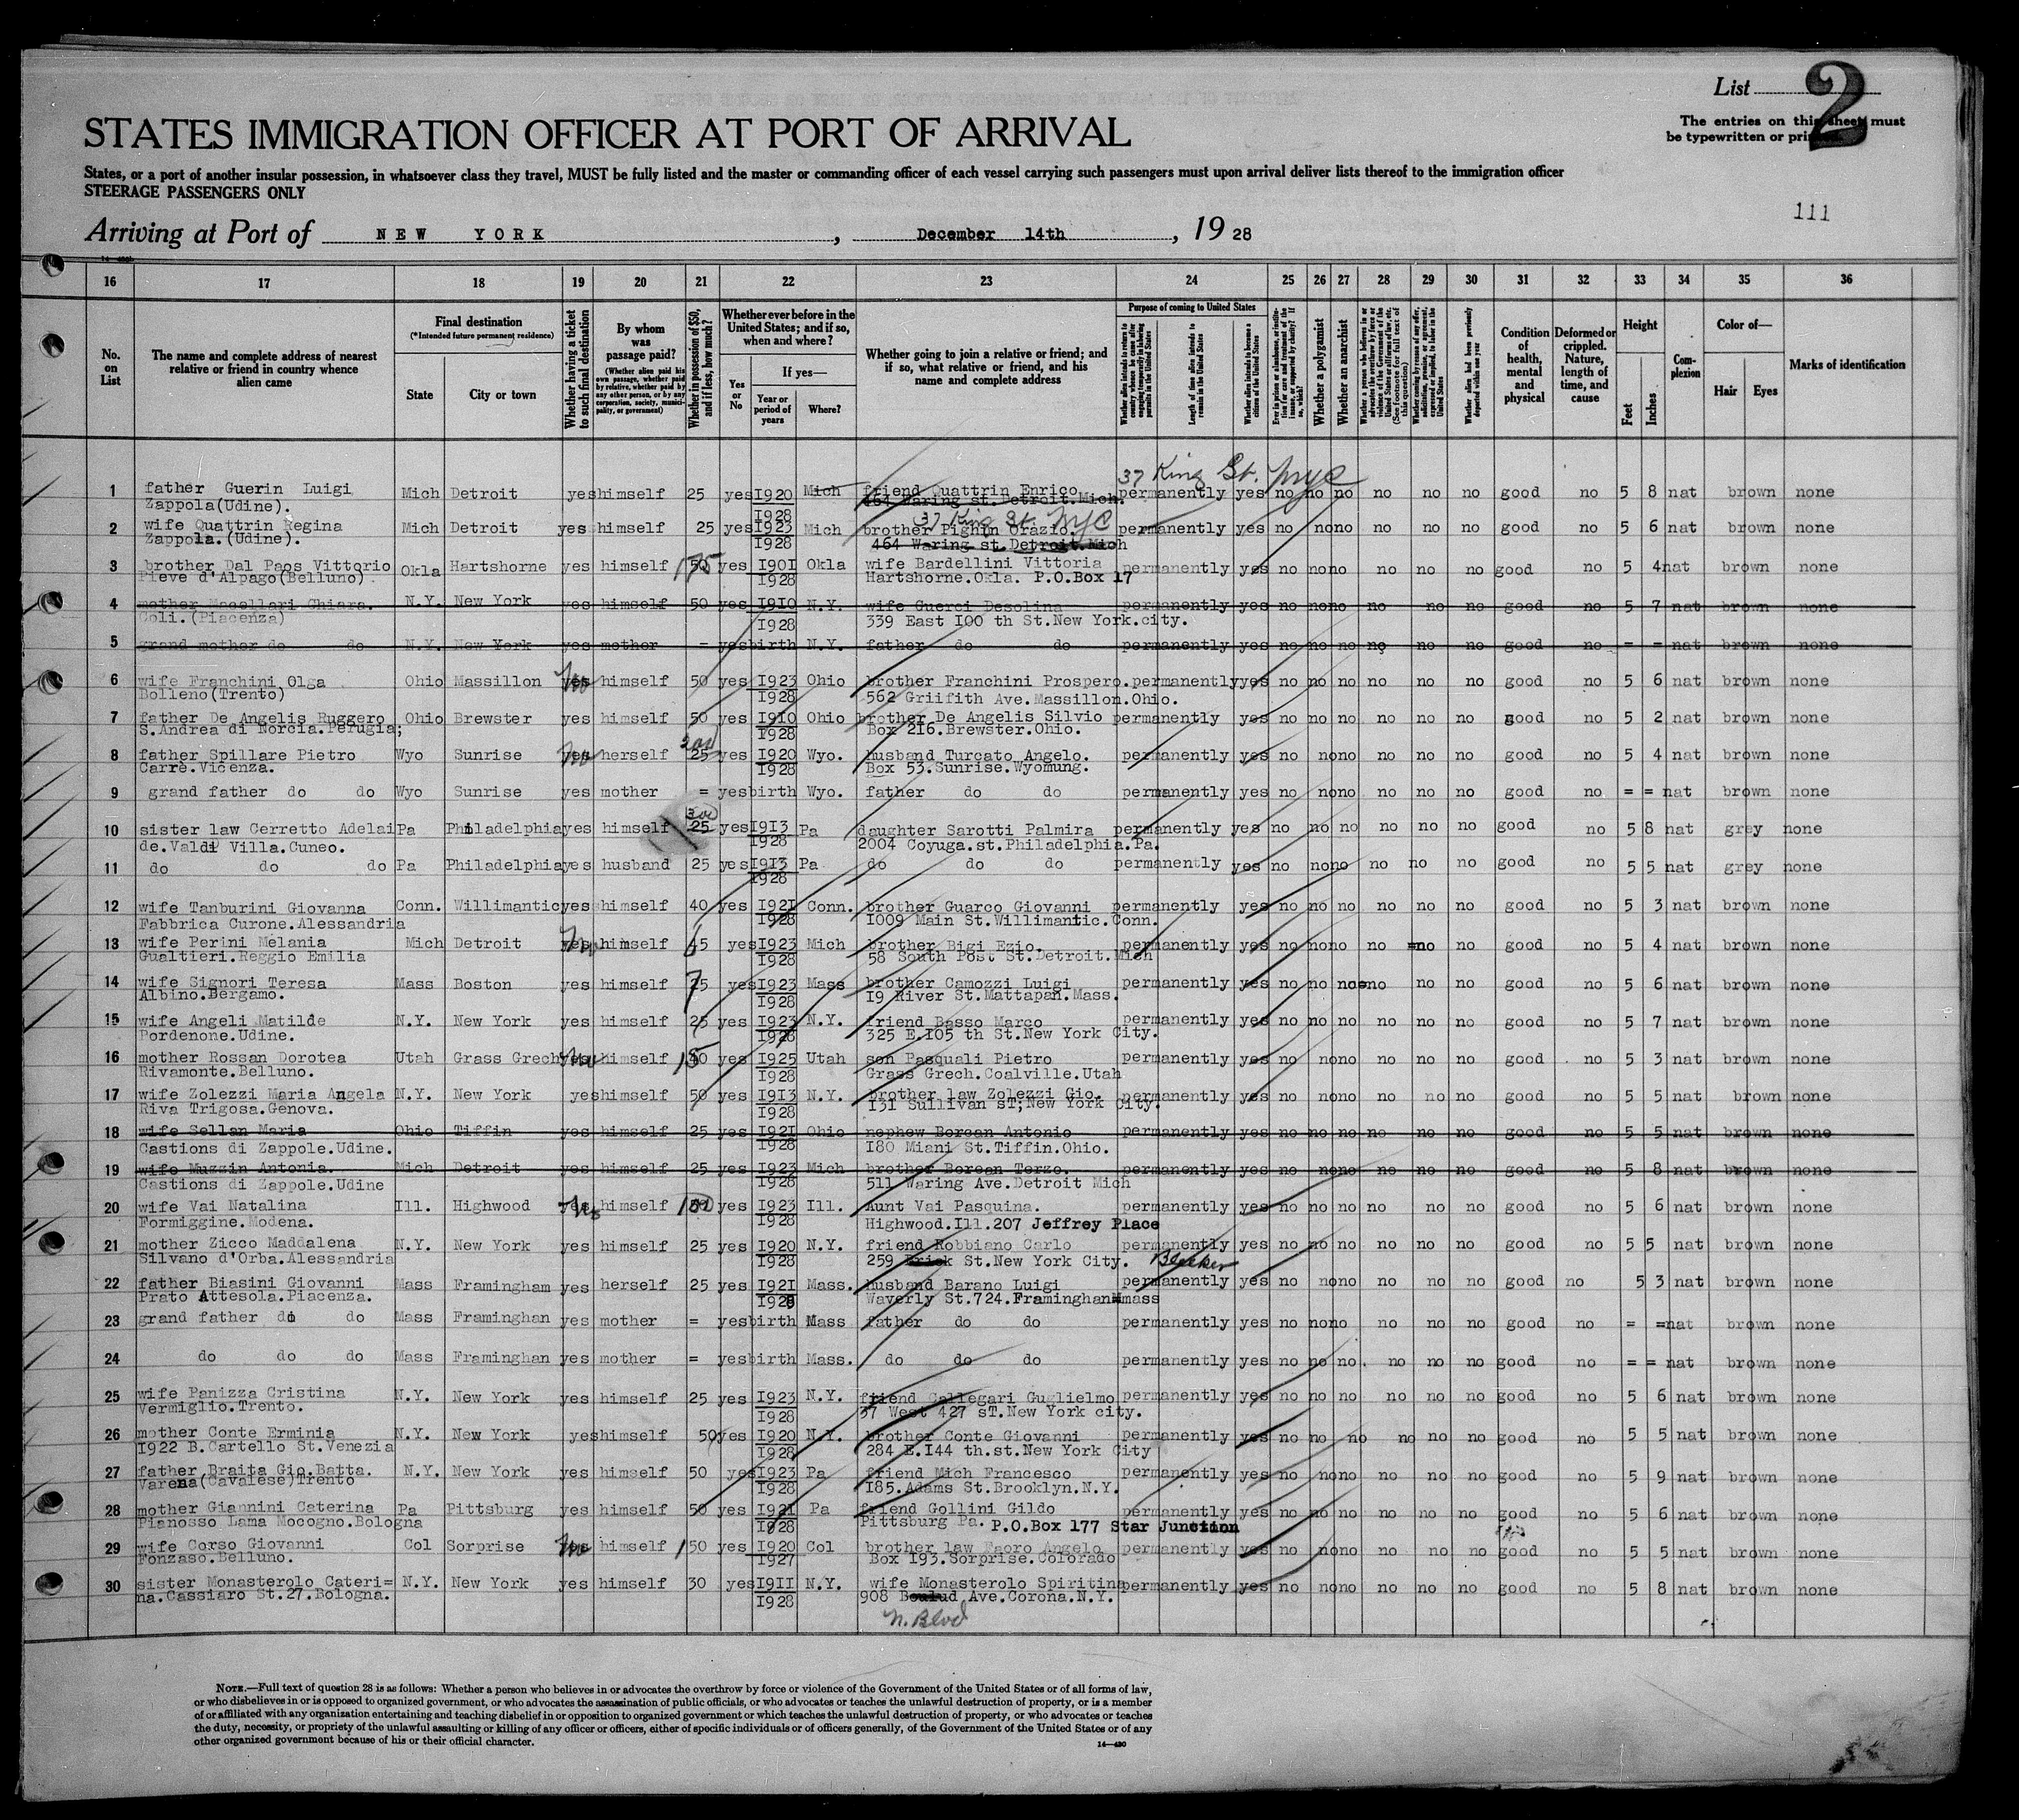 List 2
The entries on this sheet must
be typewritten or printed.
STATES IMMIGRATION OFFICER AT PORT OF ARRIVAL
States, or a port of another insular possession, in whatsoever class they travel, MUST be fully listed and the master or commanding officer of each vessel carrying such passengers must upon arrival deliver lists thereof to the immigration officer
STEERAGE PASSENGERS ONLY
111
Arriving at Port of NEW YORK, December 14th, 1928
16 17 18 19 20 21 22 23 24 25 26 27 28 29 30 31 32 33 34 35 36
No. on List
The name and complete address of nearest relative or friend in country whence alien came
Final destination
(*Intended future permanent residence)
State
City or town
Whether having a ticket to such final destination
By whom was passage paid?
(Whether alien paid his own passage, whether paid by relative, whether paid by any other person, or by any corporation, society, municipality, or government)
Whether in possession of $50, and if less, how much?
Whether ever before in the United States; and if so, when and where?
Yes or No
If yes—
Year or period of years
Where?
Whether going to join a relative or friend; and if so, what relative or friend, and his name and complete address
Purpose of coming to United States
Length of time alien intends to remain in the United States
Whether alien intends to become a citizen of the United States
Whether a polygamist
Whether an anarchist
Condition of health, mental and physical
Deformed or crippled. Nature, length of time, and cause
Height
Feet
Inches
Complexion
Color of—
Hair
Eyes
Marks of identification
37 King St. NYC
1 father Guerin Luigi Mich Detroit yes himself 25 yes 1920 Mich friend Quattrin Enrico permanently yes no no no no no no good no 5 8 nat brown none
Zappola(Udine). 1928 464 Waring st.Detroit.Mich.
37 King St. NYC
2 wife Quattrin Regina Mich Detroit yes himself 25 yes 1923 Mich brother Pighin Orazio. permanently yes no no no no no no good no 5 6 nat brown none
Zappola.(Udine). 1928 464 Waring st.Detroit.Mich
3 brother Dal Paos Vittorio Okla Hartshorne yes himself 175 yes 1901 Okla wife Bardellini Vittoria permanently yes no no no no no no good no 5 4 nat brown none
Pieve d'Alpago(Belluno). 1928 Hartshorne.Okla. P.O.Box 17
4 mother Macellari Chiara. N.Y. New York yes himself 50 yes 1910 N.Y. wife Guerci Desolina permanently yes no no no no no no good no 5 7 nat brown none
Coli.(Piacenza) 1928 339 East 100 th St.New York.city.
5 grand mother do do N.Y. New York yes mother = yes birth N.Y. father do do permanently yes no no no no no no good no = = nat brown none
6 wife Franchini Olga Ohio Massillon yes No himself 50 yes 1923 Ohio brother Franchini Prospero. permanently yes no no no no no no good no 5 6 nat brown none
Bolleno(Trento) 1928 562 Griifith Ave.Massillon.Ohio.
7 father De Angelis Ruggero Ohio Brewster yes himself 50 yes 1910 Ohio brother De Angelis Silvio permanently yes no no no no no no good no 5 2 nat brown none
S.Andrea di Norcia.Perugia; 1928 Box 216.Brewster.Ohio.
8 father Spillare Pietro Wyo Sunrise yes No herself 25 200 yes 1920 Wyo. husband Turcato Angelo. permanently yes no no no no no no good no 5 4 nat brown none
Carrè.Vicenza. 1928 Box 53.Sunrise.Wyomung.
9 grand father do do Wyo Sunrise yes mother = yes birth Wyo. father do do permanently yes no no no no no no good no = = nat brown none
10 sister law Cerretto Adelai Pa Philadelphia yes himself 25 300 yes 1913 Pa daughter Sarotti Palmira permanently yes no no no no no no good no 5 8 nat grey none
de.Valdi Villa.Cuneo. 1928 2004 Coyuga.st.Philadelphia.Pa.
11 do do do Pa Philadelphia yes husband 25 yes 1913 Pa do do do permanently yes no no no no no no good no 5 5 nat grey none
1928
12 wife Tanburini Giovanna Conn. Willimantic yes himself 40 yes 1921 Conn. brother Guarco Giovanni permanently yes no no no no no no good no 5 3 nat brown none
Fabbrica Curone.Alessandria 1928 1009 Main St.Willimantic.Conn.
13 wife Perini Melania Mich Detroit yes No himself 45 yes 1923 Mich brother Bigi Ezio. permanently yes no no no no =no no good no 5 4 nat brown none
Gualtieri.Reggio Emilia 1928 58 South Post St.Detroit.Mich
14 wife Signori Teresa Mass Boston yes himself 75 yes 1923 Mass brother Camozzi Luigi permanently yes no no no=no no no good no 5 6 nat brown none
Albino.Bergamo. 1928 19 River St.Mattapan.Mass.
15 wife Angeli Matilde N.Y. New York yes himself 25 yes 1923 N.Y. friend Basso Marco permanently yes no no no no no no good no 5 7 nat brown none
Pordenone.Udine. 1928 325 E.105 th St.New York City.
16 mother Rossan Dorotea Utah Grass Grech yes No himself 150 yes 1925 Utah son Pasquali Pietro permanently yes no no no no no no good no 5 3 nat brown none
Rivamonte.Belluno. 1928 Grass Grech.Coalville.Utah
17 wife Zolezzi Maria Angela N.Y. New York yes himself 50 yes 1913 N.Y. brother law Zolezzi Gio. permanently yes no no no no no no good no 5 5 nat brown none
Riva Trigosa.Genova. 1928 131 Sullivan sT;New York City.
18 wife Sellan Maria Ohio Tiffin yes himself 25 yes 1921 Ohio nephew Borean Antonio permanently yes no no no no no no good no 5 5 nat brown none
Castions di Zappole.Udine. 1928 180 Miani St.Tiffin.Ohio.
19 wife Muzzin Antonia. Mich Detroit yes himself 25 yes 1923 Mich brother Borean Terzo. permanently yes no no no no no no good no 5 8 nat brown none
Castions di Zappole.Udine 1928 511 Waring Ave.Detroit Mich
20 wife Vai Natalina Ill. Highwood yes No himself 100 yes 1923 Ill. Aunt Vai Pasquina. permanently yes no no no no no no good no 5 6 nat brown none
Formiggine.Modena. 1928 Highwood.Ill.207 Jeffrey Place
21 mother Zicco Maddalena N.Y. New York yes himself 25 yes 1920 N.Y. friend Robbiano Carlo permanently yes no no no no no no good no 5 5 nat brown none
Silvano d'Orba.Alessandria 1928 259 St.New York City. Bleeker
22 father Biasini Giovanni Mass Framingham yes herself 25 yes 1921 Mass. husband Barano Luigi permanently yes no no no no no no good no 5 3 nat brown none
Prato Attesola.Piacenza. 1928 Waverly St.724.Framinghan mass
23 grand father do do Mass Framinghan yes mother = yes birth Mass father do do permanently yes no no no no no no good no = = nat brown none
24 do do do Mass Framinghan yes mother = yes birth Mass. do do do permanently yes no no no. no no no good no = = nat brown none
25 wife Panizza Cristina N.Y. New York yes himself 25 yes 1923 N.Y. friend Callegari Guglielmo permanently yes no no no no no no good no 5 6 nat brown none
Vermiglio.Trento. 1928 37 West 427 sT.New York city.
26 mother Conte Erminia N.Y. New York yes himself 50 yes 1920 N.Y. brother Conte Giovanni permanently yes no no no no no no good no 5 5 nat brown none
1922 B.Cartello St.Venezia 1928 284 E.144 th.st.New York City
27 father Braita Gio.Batta. N.Y. New York yes himself 50 yes 1923 Pa friend Mich Francesco permanently yes no no no no no no good no 5 9 nat brown none
Varena(Cavalese)Trento 1928 185.Adams St.Brooklyn.N.Y.
28 mother Giannini Caterina Pa Pittsburg yes himself 50 yes 1921 Pa friend Gollini Gildo permanently yes no no no no no no good no 5 6 nat brown none
Pianosso Lama Mocogno.Bologna 1928 Pittsburg Pa. P.O.Box 177 Star Junction
29 wife Corso Giovanni Col Sorprise yes No himself 150 yes 1920 Col brother law Faoro Angelo permanently yes no no no no no no good no 5 5 nat brown none
Fonzaso.Belluno. 1927 Box 193.Sorprise.Colorado
30 sister Monasterolo Cateri= N.Y. New York yes himself 30 yes 1911 N.Y. wife Monasterolo Spiritina permanently yes no no no no no no good no 5 8 nat brown none
na.Cassiaro St.27.Bologna. 1928 908 Ave.Corona.N.Y.
N. Blvd
NOTE.—Full text of question 28 is as follows: Whether a person who believes in or advocates the overthrow by force or violence of the Government of the United States or of all forms of law,
or who disbelieves in or is opposed to organized government, or who advocates the assassination of public officials, or who advocates or teaches the unlawful destruction of property, or is a member
of or affiliated with any organization entertaining and teaching disbelief in or opposition to organized government or which teaches the unlawful destruction of property, or who advocates or teaches
the duty, necessity, or propriety of the unlawful assaulting or killing of any officer or officers, either of specific individuals or of officers generally, of the Government of the United States or of any
other organized government because of his or their official character.
14—430